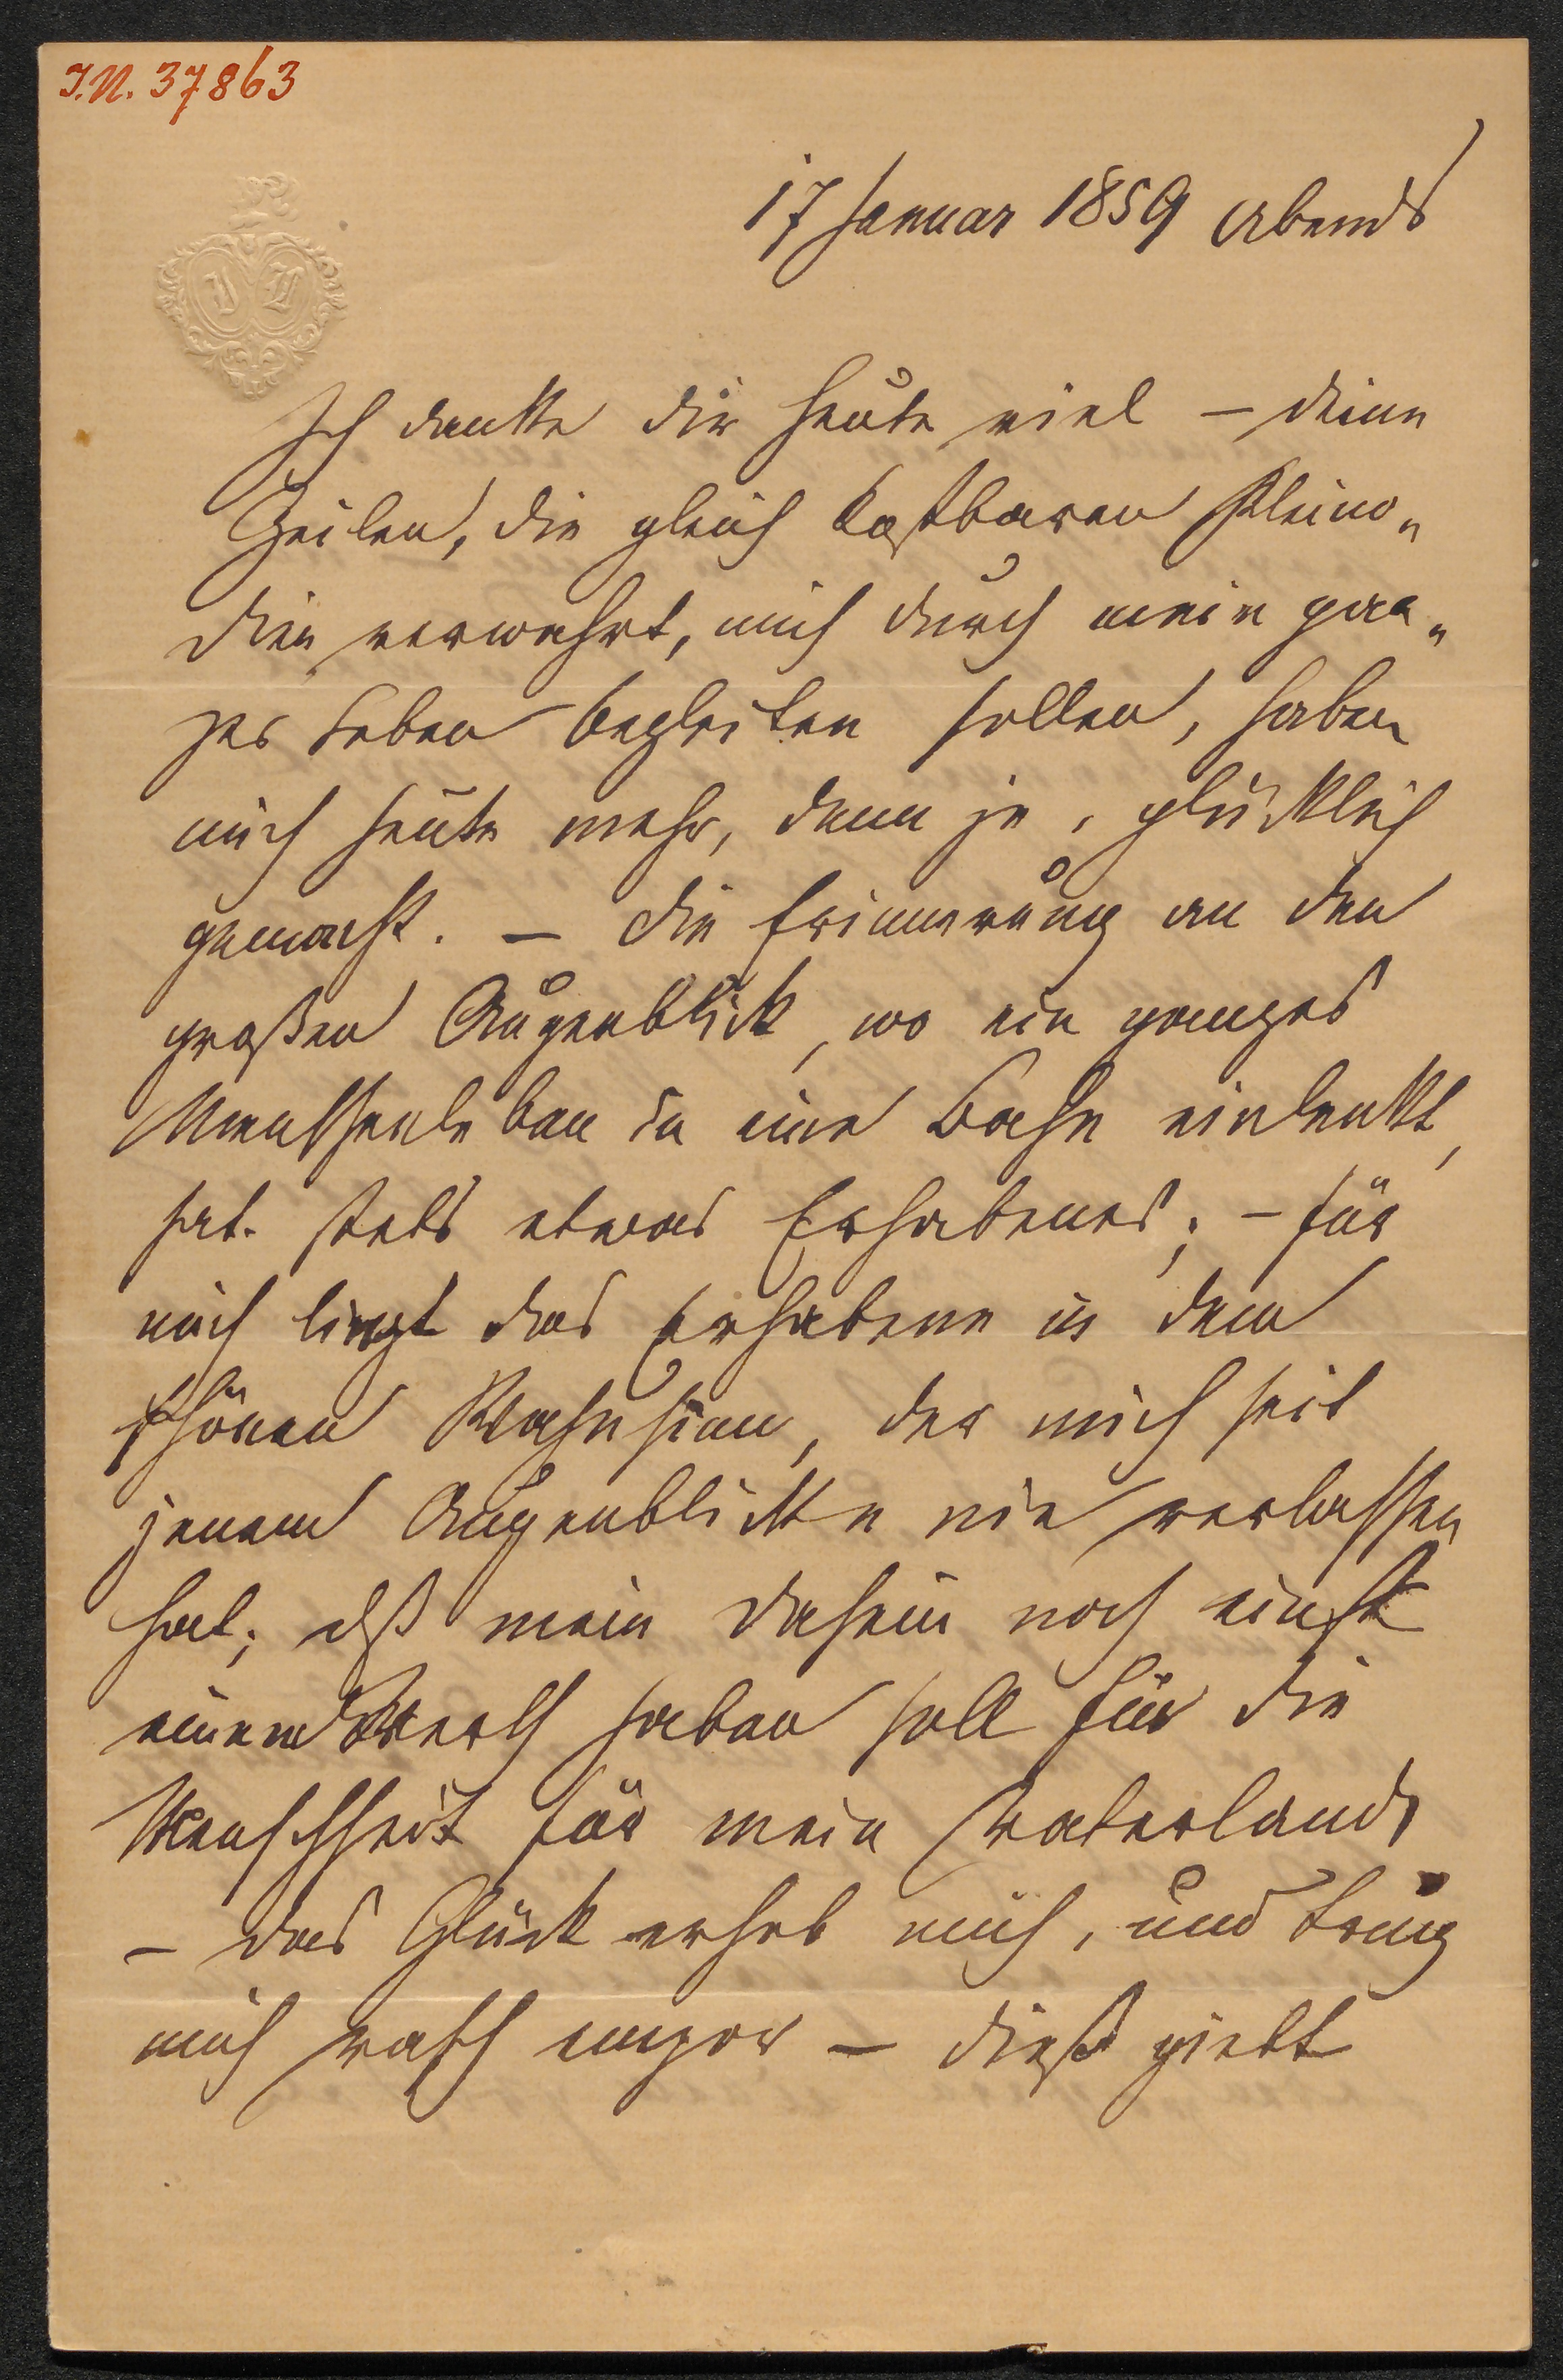 I.N. 37863
17 Januar 1859 Abends
Ich dankte dir heute viel – deine
Zeilen, die gleich kostbaren Kleino„
dien verwahrt, mich durch mein gan„
zes Leben begleiten sollen, haben
mich heute mehr, denn je, glücklich
gemacht. – Die Erinnerung an den
großen Augenblick, wo ein ganzes
Menschenleben in eine Bahn einlenkt,
hat stets etwas Erhabenes; – für
mich liegt das Erhabene in dem
schönen Wahnsinn, der mich seit
jenem Augenblicke nie verlassen
hat; daß mein Dasein noch einst
einen Werth haben soll für die
Menschheit für mein Vaterland
– das Glück erhob mich, und trug
mich rasch empor – dieß giebt